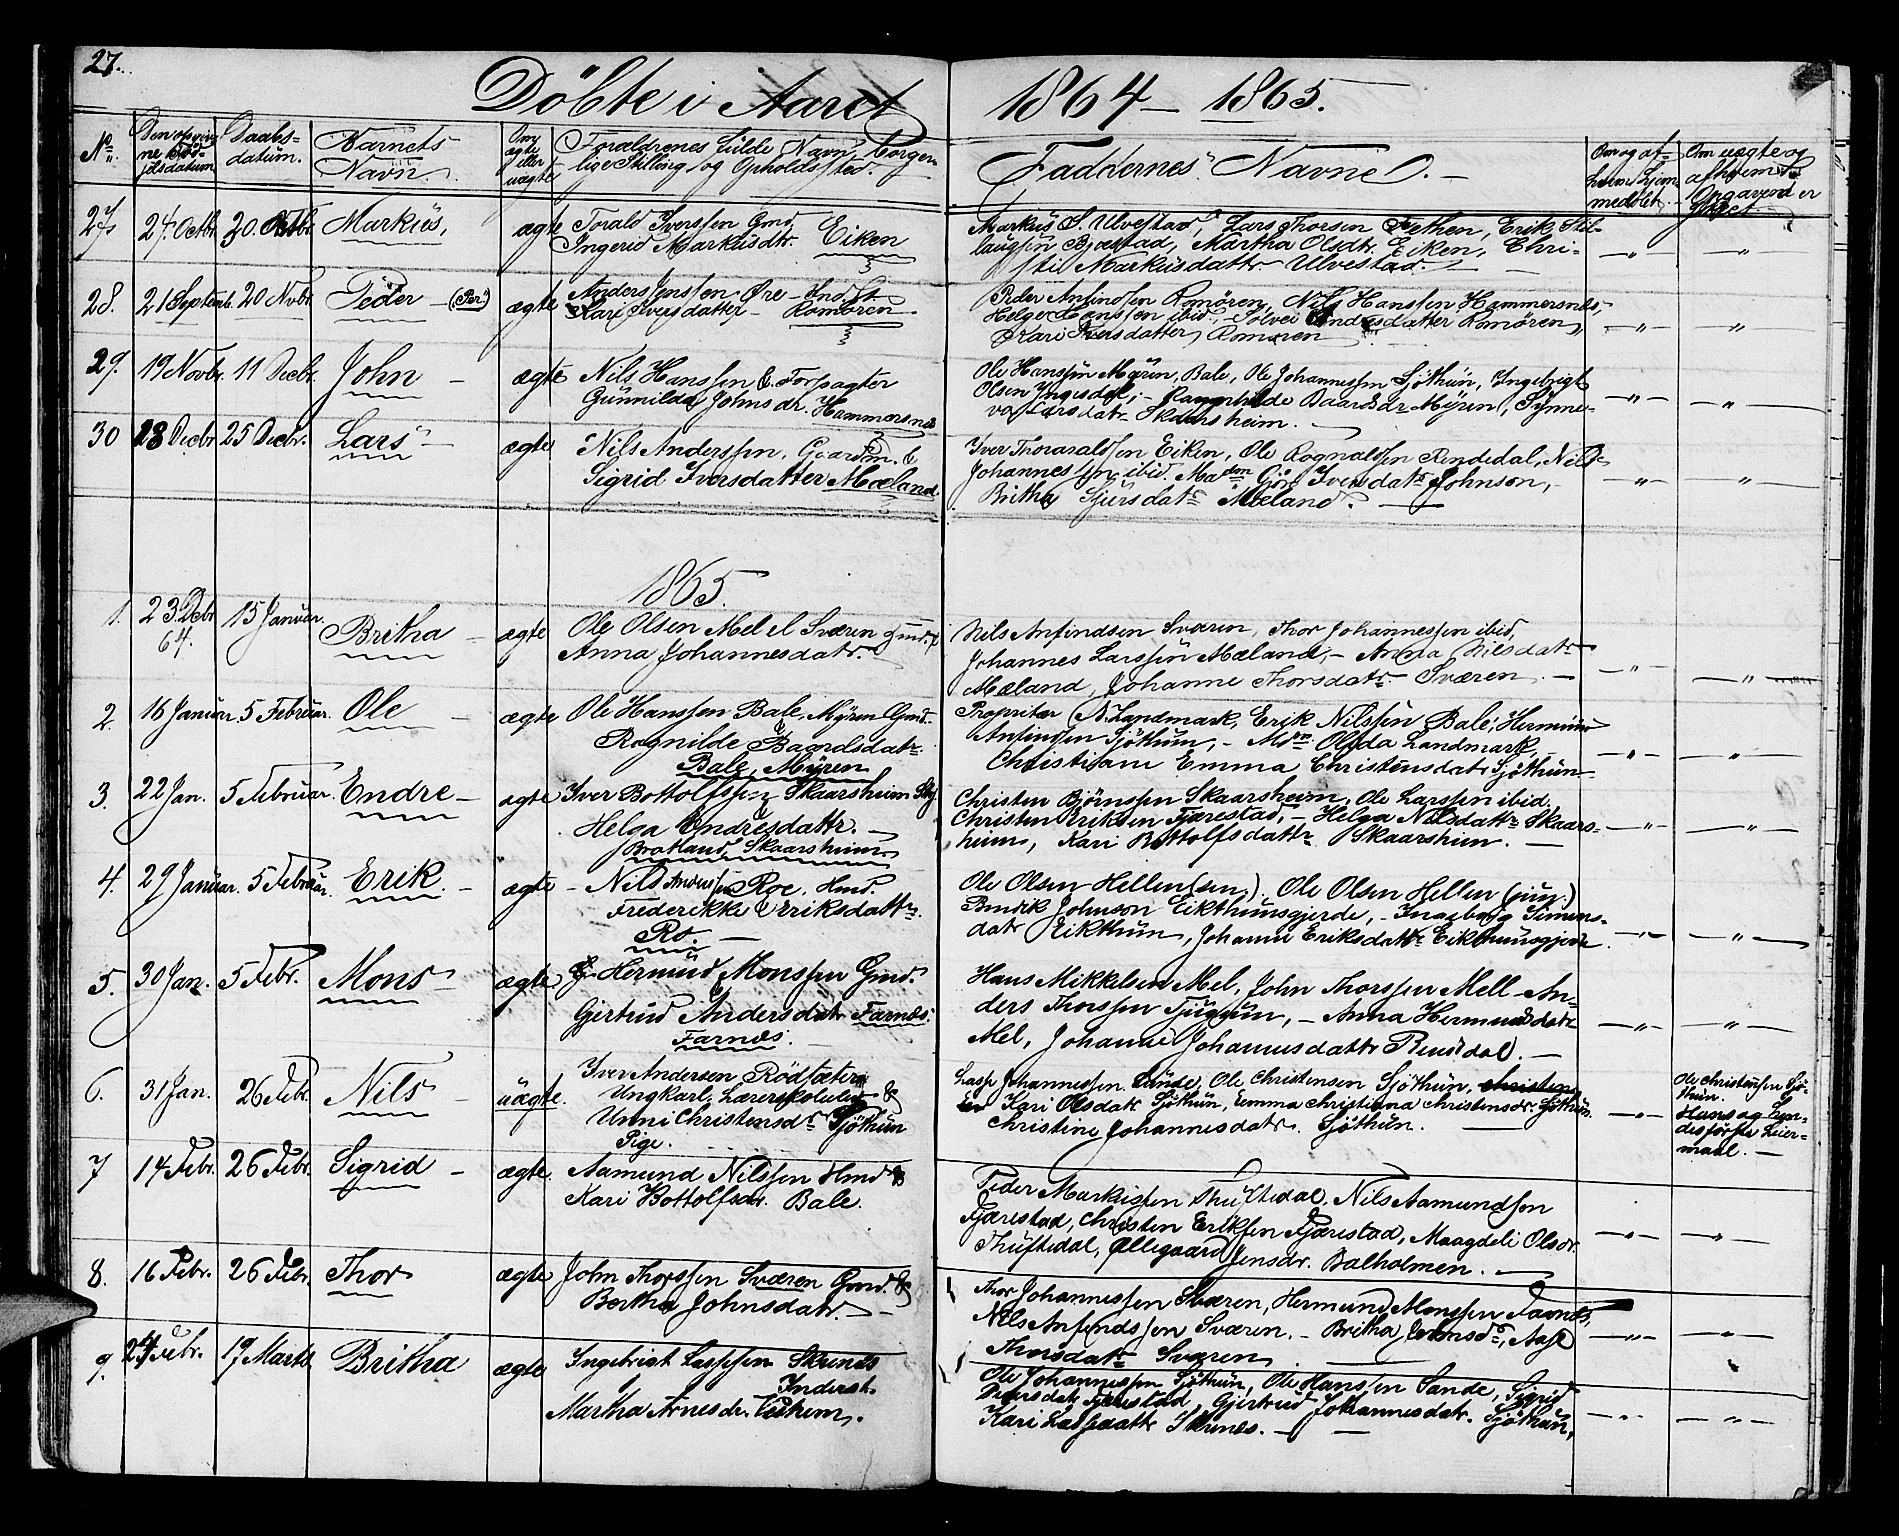 27.
Döbte i Aaret 1864 - 1865.
No. Daabs-datum. Barnets Navn. Om ægte eller uægte Forældrenes fulde Navn, Borgerlige Stilling og Opholdssted. Faddernes Navne.
27. 24. Octbr. 30. Octbr. Markus, ægte Torald Iverssen Gmd.
Ingerid Markusdtr. Eiken
Markus S. Ulvestad, Lars Thorsen Fethen, Erik
Bjæstad, Martha Olsdtr Eiken, Chri-
sti Markusdattr. Ulvestad.
28. 21 Septemb. 20 Novbr. Peder (Per) ægte Anders Jenssen Øre
Kari Iversdatter Romören
Peder Anfindsen Romören, Nils Hanssen Hammersnes,
Helge Hanssen ibid, Sølvei Andersdatter Romören,
Kari Iversdatter, Romören
29. 19 Novbr. 11 Decbr. John ægte Nils Hanssen Forpagter
Gunnilda Johnsdr. Hammersnes
Ole Hanssen Myren, Bale, Ole Johannessen Sjöthun, Ingebrigt
Olsen Ingesdal, - Rangnilde Baardsdr Myren, Synne-
va Larsdatr. Skaarsheim.
30 23 Decbr 25 Decbr. Lars ægte Nils Anderssen, Gaardm. &
Sigrid Iversdatter Mæland.
Iver Thoraldssen Eiken, Ole Rognaldssen Rendedal, Nils
Johannessen ibid. Madm Iversdatr Johnson, -
Britha Sjursdatr Mæland.
1865.
1. 23 Decbr 64. 15 Januar. Britha ægte Ole Olsen Mel Sværen Gmd. &
Anna Johannesdatr.
Nils Anfindsen Sværen, Thor Johannessen ibid,
Johannes Larssen Mæland, - Anna Nilsdatr
Mæland, Johanne Thorsdatr. Sværen. -
2. 16 Januar 5 Februar. Ole ægte Ole Hanssen Bale, Myren Gmd.
Rognilde Baardsdatr.
Bale, Myren
Propritær N. Landmark, Erik Nilssen Bale, Hermund
Anfinsen Sjöthun, - Mdm. Olida Landmark,
Christiane Emma Christensdatr Sjöthun
3. 22 Jan. 5 Februar. Endre ægte Iver Bottolfssen Skaarsheim
Helga Endresdattr.
Brotland, Skaarsheim
Christen Björnssen Skaarsheim, Ole Larssen ibid.,
Christen Eriksen Fjærestad, - Helga Nilsdattr Skaars-
heim, Kari Bottolfsdattr Skaarsheim.
4. 29 Januar. 5 Februar. Erik. ægte Nils Anderssen Roe, Hmd.
Frederikke Eriksdattr.
Ro.
Ole Olsen Hellen (sen.). Ole Olsen Hellen (jun.)
Bendik Johnson Eikthunsgjerde, - Ingeborg Simens-
datr Eikthun, Johanne Eriksdattr Eikthunsgjerde.
5. 30 Jan. 5 Febr. Mons ægte Hermund Monssen Gmd.
Gjertrud Andersdatr Farnæs.
Farnæs.
Hans Mikkelsen Mel, John Thorssen Mell An-
ders Thorssen Tjugun, - Anna Hermundsdatr
Mel, Johanne Johannesdattr Rendedal. -
6. 31 Jan. 26 Febr. Nils uægte. Iver Andersen Rödsæter
Ungkarl. Lærerskoleelev &
Unni Christensdr Sjöthun
Pige.
Lasse Johannessen Sande, Ole Christensen Sjöthun,
Kari Olsdatr Sjöthun, Emma Christiana Christensdr. Sjöthun.
Christine Johannesdatr. Sjöthun.
Ole Christensen Sjö-
thun.
Hans og Hen-
des förste Leier-
maal. -
7 14 Febr. 26 Febr. Sigrid ægte Aamund Nilssen Hmd &
Kari Bottolfsdr. Bale.
Peder Markussen Thuftedal, Nils Aamundsen
Fjærestad, Christen Eriksen Fjærestad, Maagdeli Olsdr.
Thuftedal, Ollegaard Jensdr. Balholmen.
8. 16 Febr. 26 Febr. Thor ægte John Thorssen Sværen Gmd. &
Bertha Johnsdatr.
Thor Johannessen Sværen, Hermund Monssen Farnæs,
Nils Anfindssen Sværen. - Britha, Aase
Thorsdatr Sværen
9. 24 Febr. 19 Marts Britha ægte Ingebrigt Lassesen Skrenes
Inderst.
Martha Arnesdr. Vestrem.
Ole Johannessen Sjöthun, Ole Hanssen Sande, Sigrid
Fjærestad, Gjertrud Johannesdatr. Sjöthun,
Kari Lassedattr Skrenes.